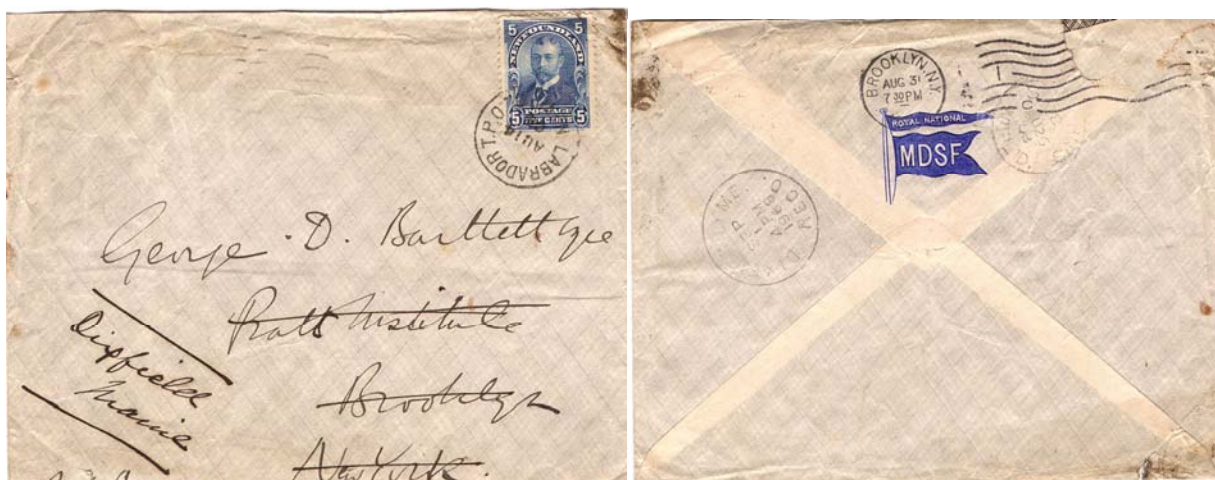 5 5
NEWFOUNDLAND
POSTAGE
5 FIVE CENTS 5
LABRADOR T.P.O.
AU 14
George . D. Bartlett Esqre
Pratt Institute
Brooklyn
New York.
Dixfield
Maine
BROOKLYN, N.Y.
AUG 31
7 30 PM
ROYAL NATIONAL
MDSF
ME.
REC'D.